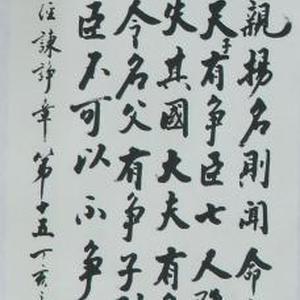 親揚名則聞命
天子有争臣七人
失其國大夫有
令名父有争子
臣不可以不争
經諫諍章第十五丁亥